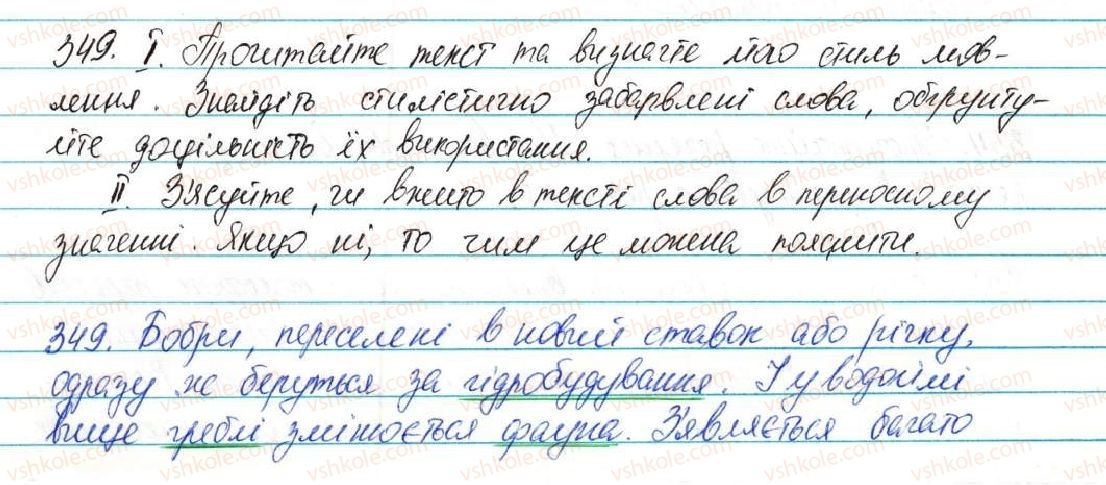 349. I. Прочитайте текст та визначте його стиль мов-
лення. Знайдіть стилістично забарвлені слова, обґрунту-
йте доцільність їх використання.
II. З'ясуйте, чи вжито в тексті слова в переносному
значенні. Якщо ні, то чим це можна пояснити.
349. Бобри, переселені в новий ставок або річку,
одразу ж беруться за гідробудування. І у водоймі
вище греблі змінюється фауна. З'являється багато